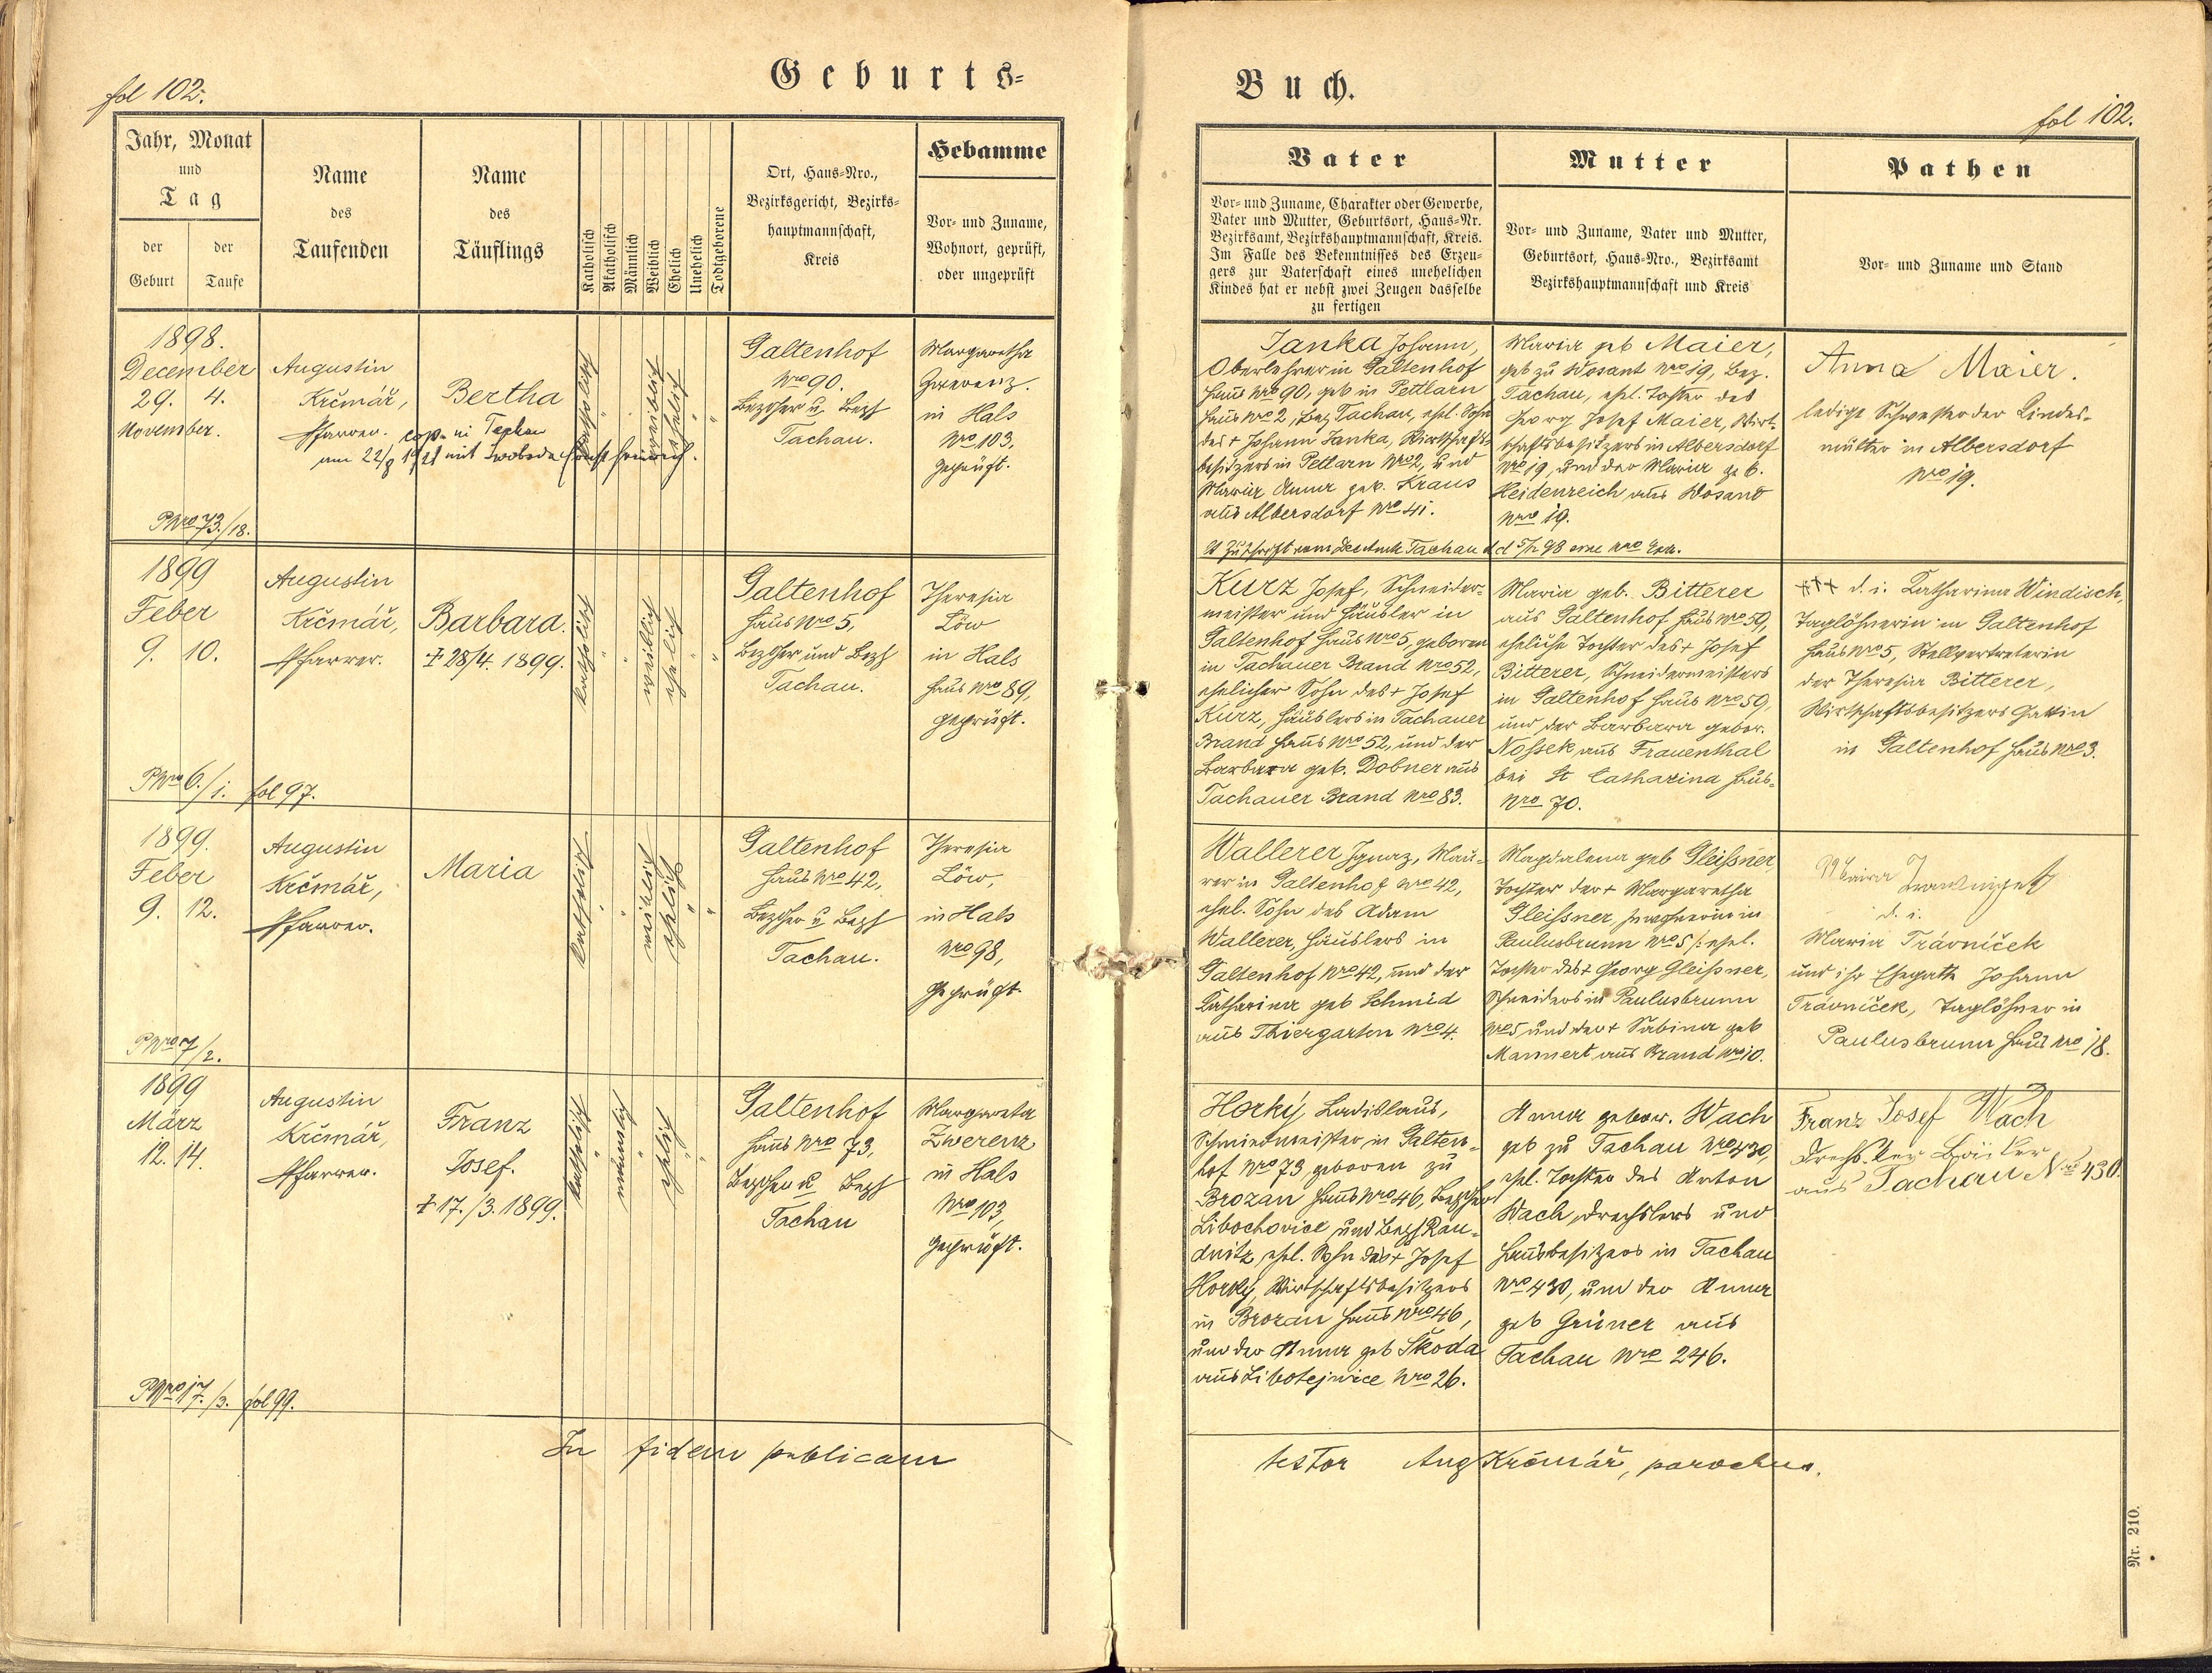 fol 102.
Geburts-
Buch.
fol 102.
Jahr, Monat
und
Tag
der
Geburt
der
Taufe
Name
des
Taufenden
Name
des
Täuflings
Katholisch
Akatholisch
Männlich
Weiblich
Ehelich
Unehelich
Todtgeborene
Ort, Haus-Nro.,
Bezirksgericht, Bezirks-
hauptmannschaft,
Kreis
Hebamme
Vor- und Zuname,
Wohnort, geprüft,
oder ungeprüft
Vater
Vor- und Zuname, Charakter oder Gewerbe,
Vater und Mutter, Geburtsort, Haus-Nr.
Bezirksamt, Bezirkshauptmannschaft, Kreis.
Im Falle des Bekenntnisses des Erzeu-
gers zur Vaterschaft eines unehelichen
Kindes hat er nebst zwei Zeugen dasselbe
zu fertigen
Mutter
Vor- und Zuname, Vater und Mutter,
Geburtsort, Haus-Nro., Bezirksamt
Bezirkshauptmannschaft und Kreis
Pathen
Vor- und Zuname und Stand
1898.
December
29. 4.
November.
PNro 73./18.
Augustin
Krčmář,
Pfarrer.
Bertha
cop. in Tachau
am 22/8 1921 mit Swoboda
katholisch
weiblich
ehelich
Galtenhof
Nro 90.
Tachau.
Margaretha
in Hals
Nro 103,
geprüft.
Janka Johann,
Oberlehrer in Galtenhof
Haus Nro 90, geb in Pettlarn
Haus Nro 2, Bez Tachau, ehel. Sohn
des + Johann Janka, Wirtschafts-
besitzers in Petlarn Nro 2, und
Maria Anna geb. Kraus
aus Albersdorf Nro 41.
Maria geb Maier,
geb zu Wosant Nro 19, Bez.
Tachau, ehel. Tochter des
Georg Josef Maier, Wirt-
schaftsbesitzers in Albersdorf
Nro 19, und der Maria geb.
Heidenreich aus Wosand
Nro 19.
Anna Maier.
ledige Schwester der Kindes-
mutter in Albersdorf
Nro 19.
1899
Feber
9. 10.
PNro 6./1. fol 97.
Augustin
Krčmář,
Pfarrer.
Barbara.
+ 28/4. 1899.
katholisch
weiblich
ehelich
Galtenhof
Haus Nro 5,
Bezger und Bezh
Tachau.
Theresia
Löw
in Hals
Haus Nro 89,
geprüft.
Kurz Josef, Schneider-
meister und Häusler in
Galtenhof Haus Nro 5, geboren
in Tachauer Brand Nro 52,
ehelicher Sohn des + Josef
Kurz, Häuslers in Tachauer
Brand Haus Nro 52, und der
Barbara geb. Dobner aus
Tachauer Brand Nro 83.
Maria geb. Bitterer
aus Galtenhof Haus Nro 59,
eheliche Tochter des + Josef
Bitterer, Schneidermeisters
in Galtenhof Haus Nro 59,
und der Barbara gebor.
Nossek aus Frauenthal
bei St Catharina Haus-
Nro 70.
+++ d. i. Katharina Windisch,
Taglöhnerin in Galtenhof
Haus Nro 5, Stellvertreterin
der Theresia Bitterer,
Wirtschaftsbesitzers Gattin
in Galtenhof Haus Nro 3.
1899.
Feber
9. 12.
PNro 7/2.
Augustin
Krčmář,
Pfarrer.
Maria
katholisch
weiblich
ehelich
Galtenhof
Haus Nro 42,
Bezger u Bezh
Tachau.
Theresia
Löw,
in Hals
Nro 98,
geprüft.
Wallerer Ignaz, Mau-
rer in Galtenhof Nro 42,
ehel. Sohn des Adam
Wallerer, Häuslers in
Galtenhof Nro 42, und der
Katharina geb Schmid
aus Thiergarten Nro 4.
Magdalena geb Gleißner,
Tochter der + Margaretha
Gleissner, Inwohnerin in
Paulusbrunn Nro 5 /: ehel.
Tochter des + Georg Gleißner,
Schneiders in Paulusbrunn
Nro 5 und der + Sabina geb
Mannert aus Brand Nro 10.
d. i.
Maria Trávníček
und ihr Ehegatte Johann
Trávníček, Taglöhner in
Paulusbrunn Haus Nro 18.
1899
März
12. 14.
PNro 17./3. fol 99.
Augustin
Krčmář,
Pfarrer.
Franz
Josef.
+ 17./3. 1899.
katholisch
männlich
ehelich
Galtenhof
Haus Nro 73,
Bezger u Bezh
Tachau
Margareta
Zwerenz
in Hals
Nro 103,
geprüft.
Horký Ladislaus,
Schmiedmeister in Galten-
hof Nro 73 geboren zu
Brozan Haus Nro 46, Bezger
Libochovice und Bezh Rau-
dnitz, ehel. Sohn des + Josef
Horký, Wirtschaftsbesitzers
in Brozan Haus Nro 46,
und der Anna geb Škoda
aus Libotejnice Nro 26.
Anna gebor. Wach
geb zu Tachau Nro 430,
ehel. Tochter des Anton
Wach, Drechslers und
Hausbesitzers in Tachau
Nro 430, und der Anna
geb Grüner aus
Tachau Nro 246.
Franz Josef Wach
aus Tachau Nro 430.
In fidem publicam
testor Aug Krčmář, parochus.
Nr. 210.